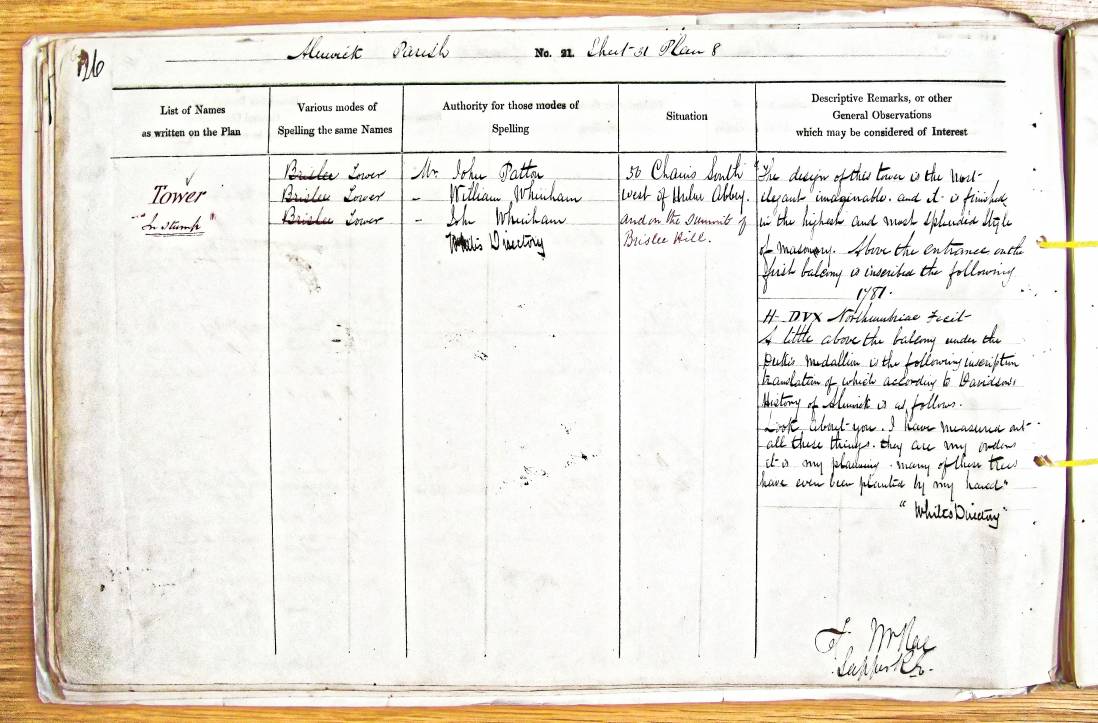 126
Alnwick Parish No. 21. Sheet 31 Plan 8
List of Names
as written on the Plan
Various modes of
Spelling the same Names
Authority for those modes of
Spelling
Situation
Descriptive Remarks, or other
General Observations
which may be considered of Interest
Tower
"In Stump"
Brislee Tower
Brislee Tower
Brislee Tower
Mr. John Patton
- William Whinham
- John Whinham
White's Directory
50 Chains South
west of Hulne Abbey.
and on the Summit of
Brislee Hill.
"The design of this tower is the most
elegant imaginable. and it is finished
in the highest and most splendid style
of masonry. Above the entrance on the
first balcony is inscribed the following
1781.
H. DVX Northumbriae Fecit
A little above the balcony under the
Duke's medallion is the following inscription
translation of which according to Davidson's
History of Alnwick is as follows.
Look about you. I have measured out
all these things. they are my orders
it is my planning. many of these trees
have even been planted by my hand"
"White's Directory"
McRae
Sapper R.E.